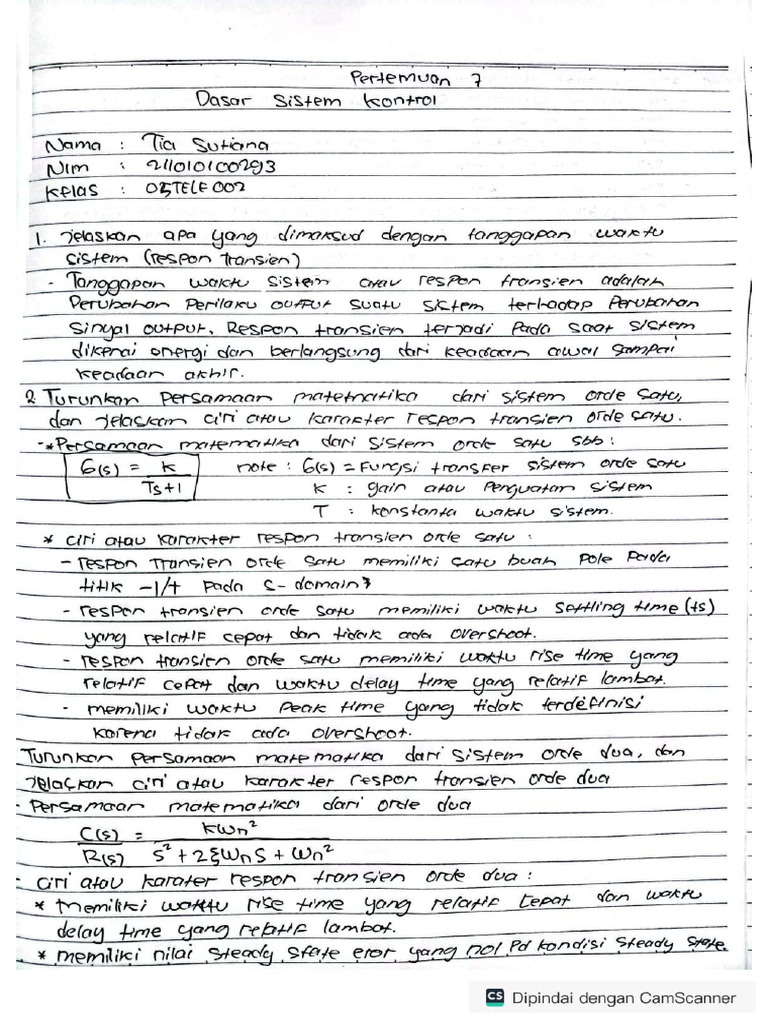 Pertemuan 7
Dasar Sistem Kontrol
Nama : Tia Sutiana
Nim : 211010100293
Kelas : 05TELE002
1. Jelaskan apa yang dimaksud dengan tanggapan waktu
sistem (respon transien)
- Tanggapan waktu sistem atau respon transien adalah
Perubahan Perilaku output suatu sistem terhadap Perubahan
sinyal output. Respon transien terjadi Pada saat sistem
dikenai energi dan berlangsung dari keadaan awal sampai
keadaan akhir.
2 Turunkan Persamaan matematika dari sistem orde satu,
dan Jelaskan ciri atau karakter respon transien orde satu.
-* Persamaan matematika dari sistem orde satu sbb:
G(s) = K / Ts+1 note : G(s) = Fungsi transfer sistem orde satu
K : gain atau Penguatan sistem
T : konstanta waktu sistem.
* ciri atau karakter respon transien orde satu :
- respon transien orde satu memiliki satu buah pole Pada
titik -1/t pada s-domain
- respon transien orde satu memiliki waktu settling time (ts)
yang relatif cepat dan tidak ada overshoot.
- respon transien orde satu memiliki waktu rise time yang
relatif cepat dan waktu delay time yang relatif lambat.
- memiliki waktu Peak time yang tidak terdefinisi
karena tidak ada overshoot.
Turunkan Persamaan matematika dari sistem orde dua, dan
Jelaskan ciri atau karakter respon transien orde dua
- Persamaan matematika dari orde dua
C(s) / R(s) = KWn² / S² + 2ξWnS + Wn²
- ciri atau karater respon transien orde dua :
* Memiliki waktu rise time yang relatif cepat dan waktu
delay time yang relatif lambat.
* memiliki nilai steady state eror yang nol Pd kondisi steady state.
CS Dipindai dengan CamScanner